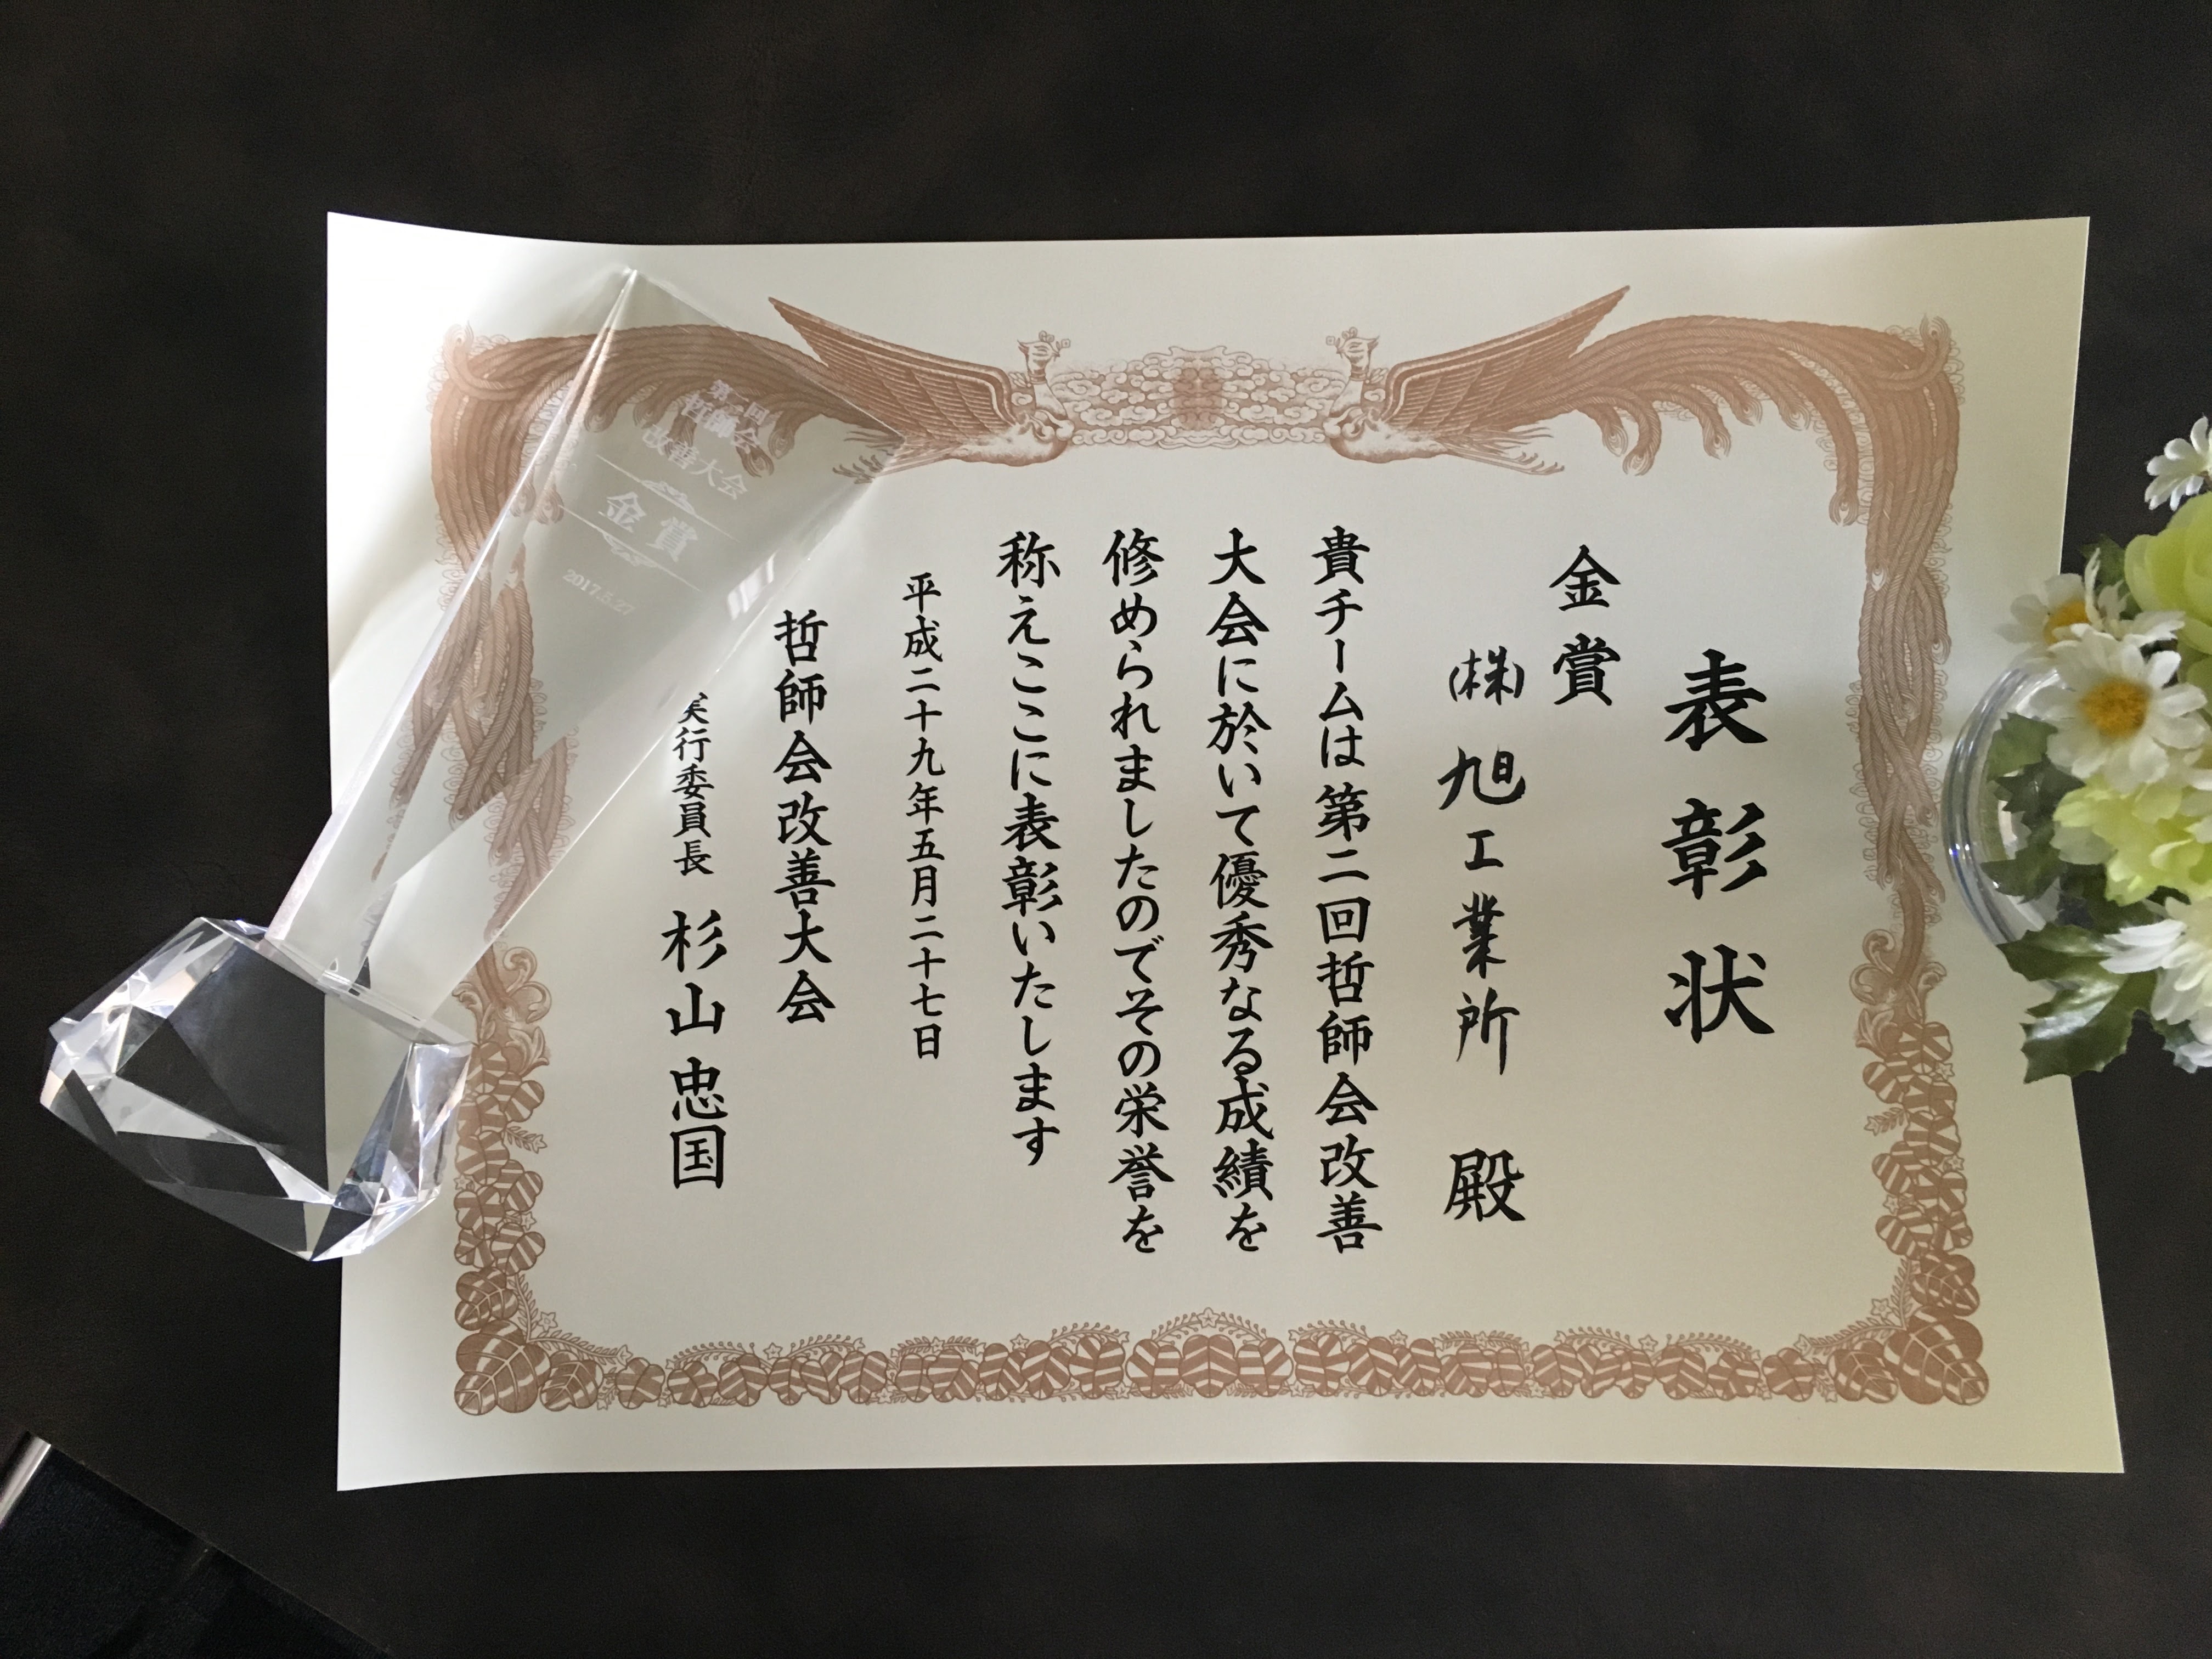 表彰状
金賞
(株)旭工業所 殿
貴チームは第二回哲師会改善
大会に於いて優秀なる成績を
修められましたのでその栄誉を
称えここに表彰いたします
平成二十九年五月二十七日
哲師会改善大会
実行委員長 杉山忠国
第二回
哲師会
改善大会
金賞
2017.5.27